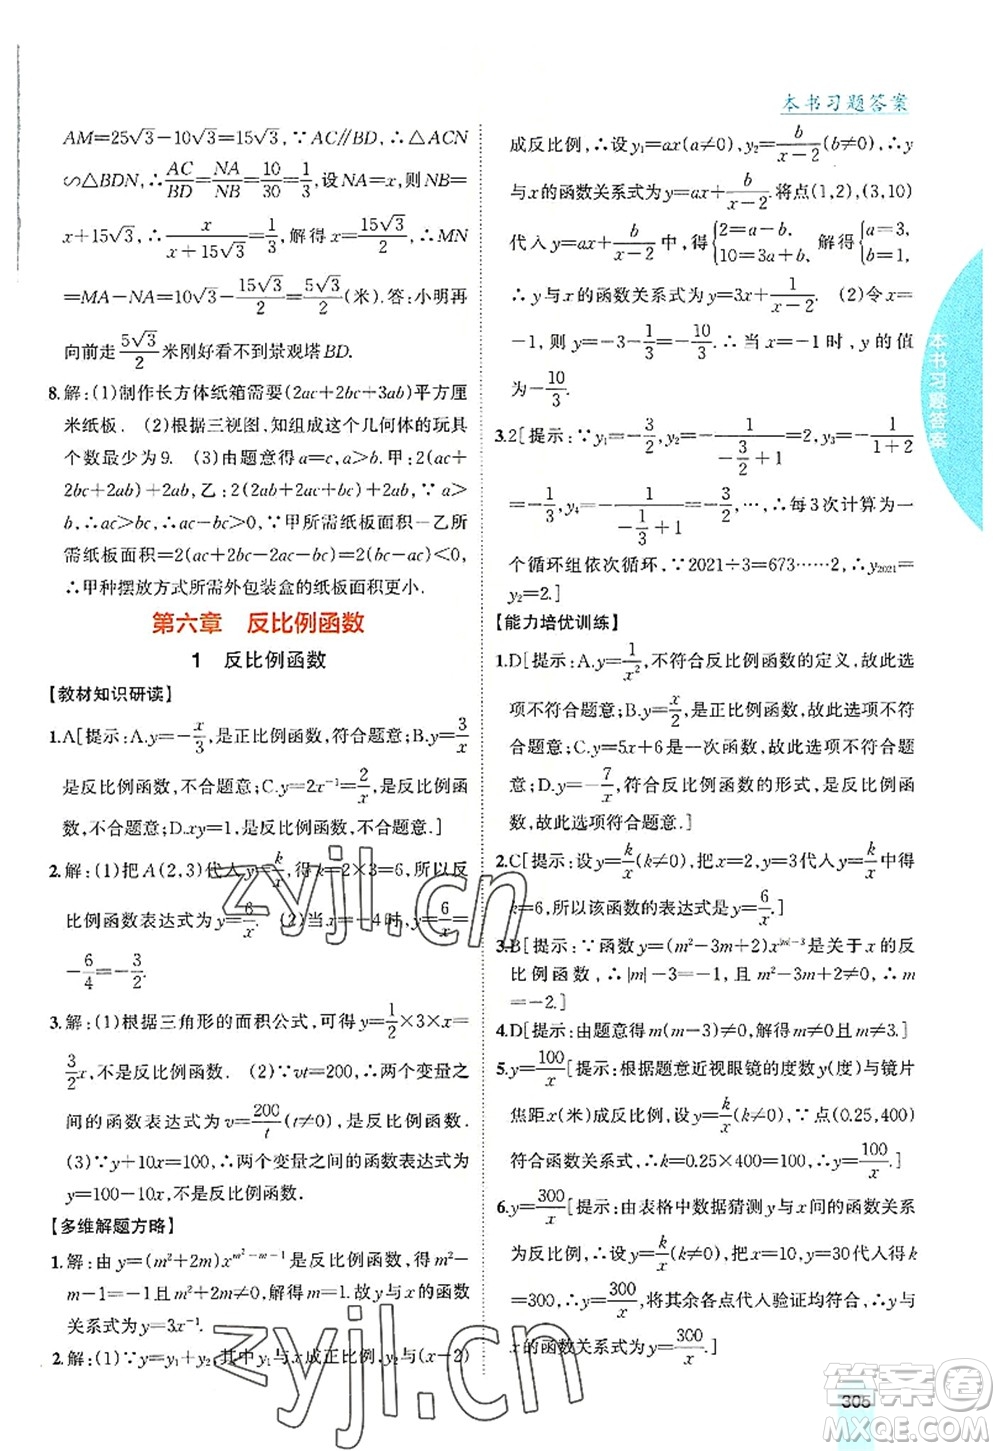 本书习题答案
AM=25√3-10√3=15√3,∵AC∥BD,∴△ACN
∽△BDN,∴AC/BD=NA/NB=10/30=1/3,设NA=x,则NB=
x+15√3,∴x/(x+15√3)=1/3,解得x=15√3/2,∴MN
=MA-NA=15√3-15√3/2=15√3/2(米).答:小明再
向前走5√3/2米刚好看不到景观塔BD.
8.解:(1)制作长方体纸箱需要(2ac+2bc+3ab)平方厘
米纸板. (2)根据三视图,知组成这个几何体的玩具
个数最少为9. (3)由题意得.甲:2(ac+
2bc+2ab)+2ab,乙:2(2ab+2ac+bc)+2ab.∵a>
b,∴ac>bc,∴ac-bc>0,∵甲所需纸板面积-乙所
需纸板面积=2(ac+2bc-2ac-bc)=2(bc-ac)<0,
∴甲种摆放方式所需外包装盒的纸板面积更小.
第六章 反比例函数
1 反比例函数
【教材知识研读】
1.A[提示:A.y=-x/3,是正比例函数,符合题意;B.y=3/x
是反比例函数,不合题意;C.y=2x⁻¹=2/x是反比例函
数,不合题意;D.xy=1,是反比例函数,不合题意.]
2.解:(1)把A(2,3)代入y=k/x,得k=2×3=6,所以反
比例函数表达式为y=6/x. (2)当x=-4时,y=6/x=
-6/4=-3/2.
3.解:(1)根据三角形的面积公式,可得y=1/2×3×x=
3/2x,不是反比例函数. (2)∵vt=200,∴两个变量之
间的函数表达式为v=200/t(t≠0),是反比例函数.
(3)∵y+10x=100,∴两个变量之间的函数表达式为
y=100-10x,不是反比例函数.
【多维解题方略】
1.解:由y=(m²+2m)x^(m²-m-1)是反比例函数,得m²-
m-1=-1且m²+2m≠0,解得m=1.故y与x的函数
关系式为y=3x⁻¹.
2.解:(1)∵y=y₁+y₂,其中y₁与x成正比例,y₂与(x-2)
成反比例,∴设y₁=ax(a≠0),y₂=b/(x-2)(b≠0),∴y
与x的函数关系式为y=ax+b/(x-2).将点(1,2),(3,10)
代入y=ax+b/(x-2)中,得{2=a-b, 10=3a+b,解得{a=3, b=1,
∴y与x的函数关系式为y=3x+1/(x-2). (2)令x=
-1,则y=-3-1/3=-10/3,当x=-1时,y的值
为-10/3.
3.2[提示:∵y₁=-3/2,y₂=-1/(-3/2+1)=2,y₃=-1/(1+2)
=-1/3,y₄=-1/(-1/3+1)=-3/2,…,∴每3次计算为一
个循环组依次循环,∵2021÷3=673……2,∴y₂₀₂₁=
y₂=2.]
【能力培优训练】
1.D[提示:A.y=1/x²,不符合反比例函数的定义,故此选
项不符合题意;B.y=x/2,是正比例函数,故此选项不符
合题意;C.y=5x+6是一次函数,故此选项不符合题
意;D.y=-7/x,符合反比例函数的形式,是反比例函
数,故此选项符合题意.]
2.C[提示:设y=k/x(k≠0),把x=2,y=3代入y=k/x中得
k=6,所以该函数的表达式是y=6/x.]
3.B[提示:∵函数y=(m²-3m+2)x^(|m|-3)是关于x的反
比例函数,∴|m|-3=-1,且m²-3m+2≠0,∴m=
-2.]
4.D[提示:由题意得m(m-3)≠0,解得m≠0且m≠3.]
5.y=100/x[提示:根据题意近视眼镜的度数y(度)与镜片
焦距x(米)成反比例,设y=k/x(k≠0),∵点(0.25,400)
符合函数关系式,∴k=0.25×400=100,∴y=100/x.]
6.y=300/x[提示:由表格中数据猜测y与x间的函数关系
为反比例,∴设y=k/x(k≠0),把x=10,y=30代入得k
=300,∴y=300/x,将其余各点代入验证均符合,∴y与
x的函数关系式为y=300/x.]
本书习题答案
305
zyjl.cn
zyjl.cn
答案圈